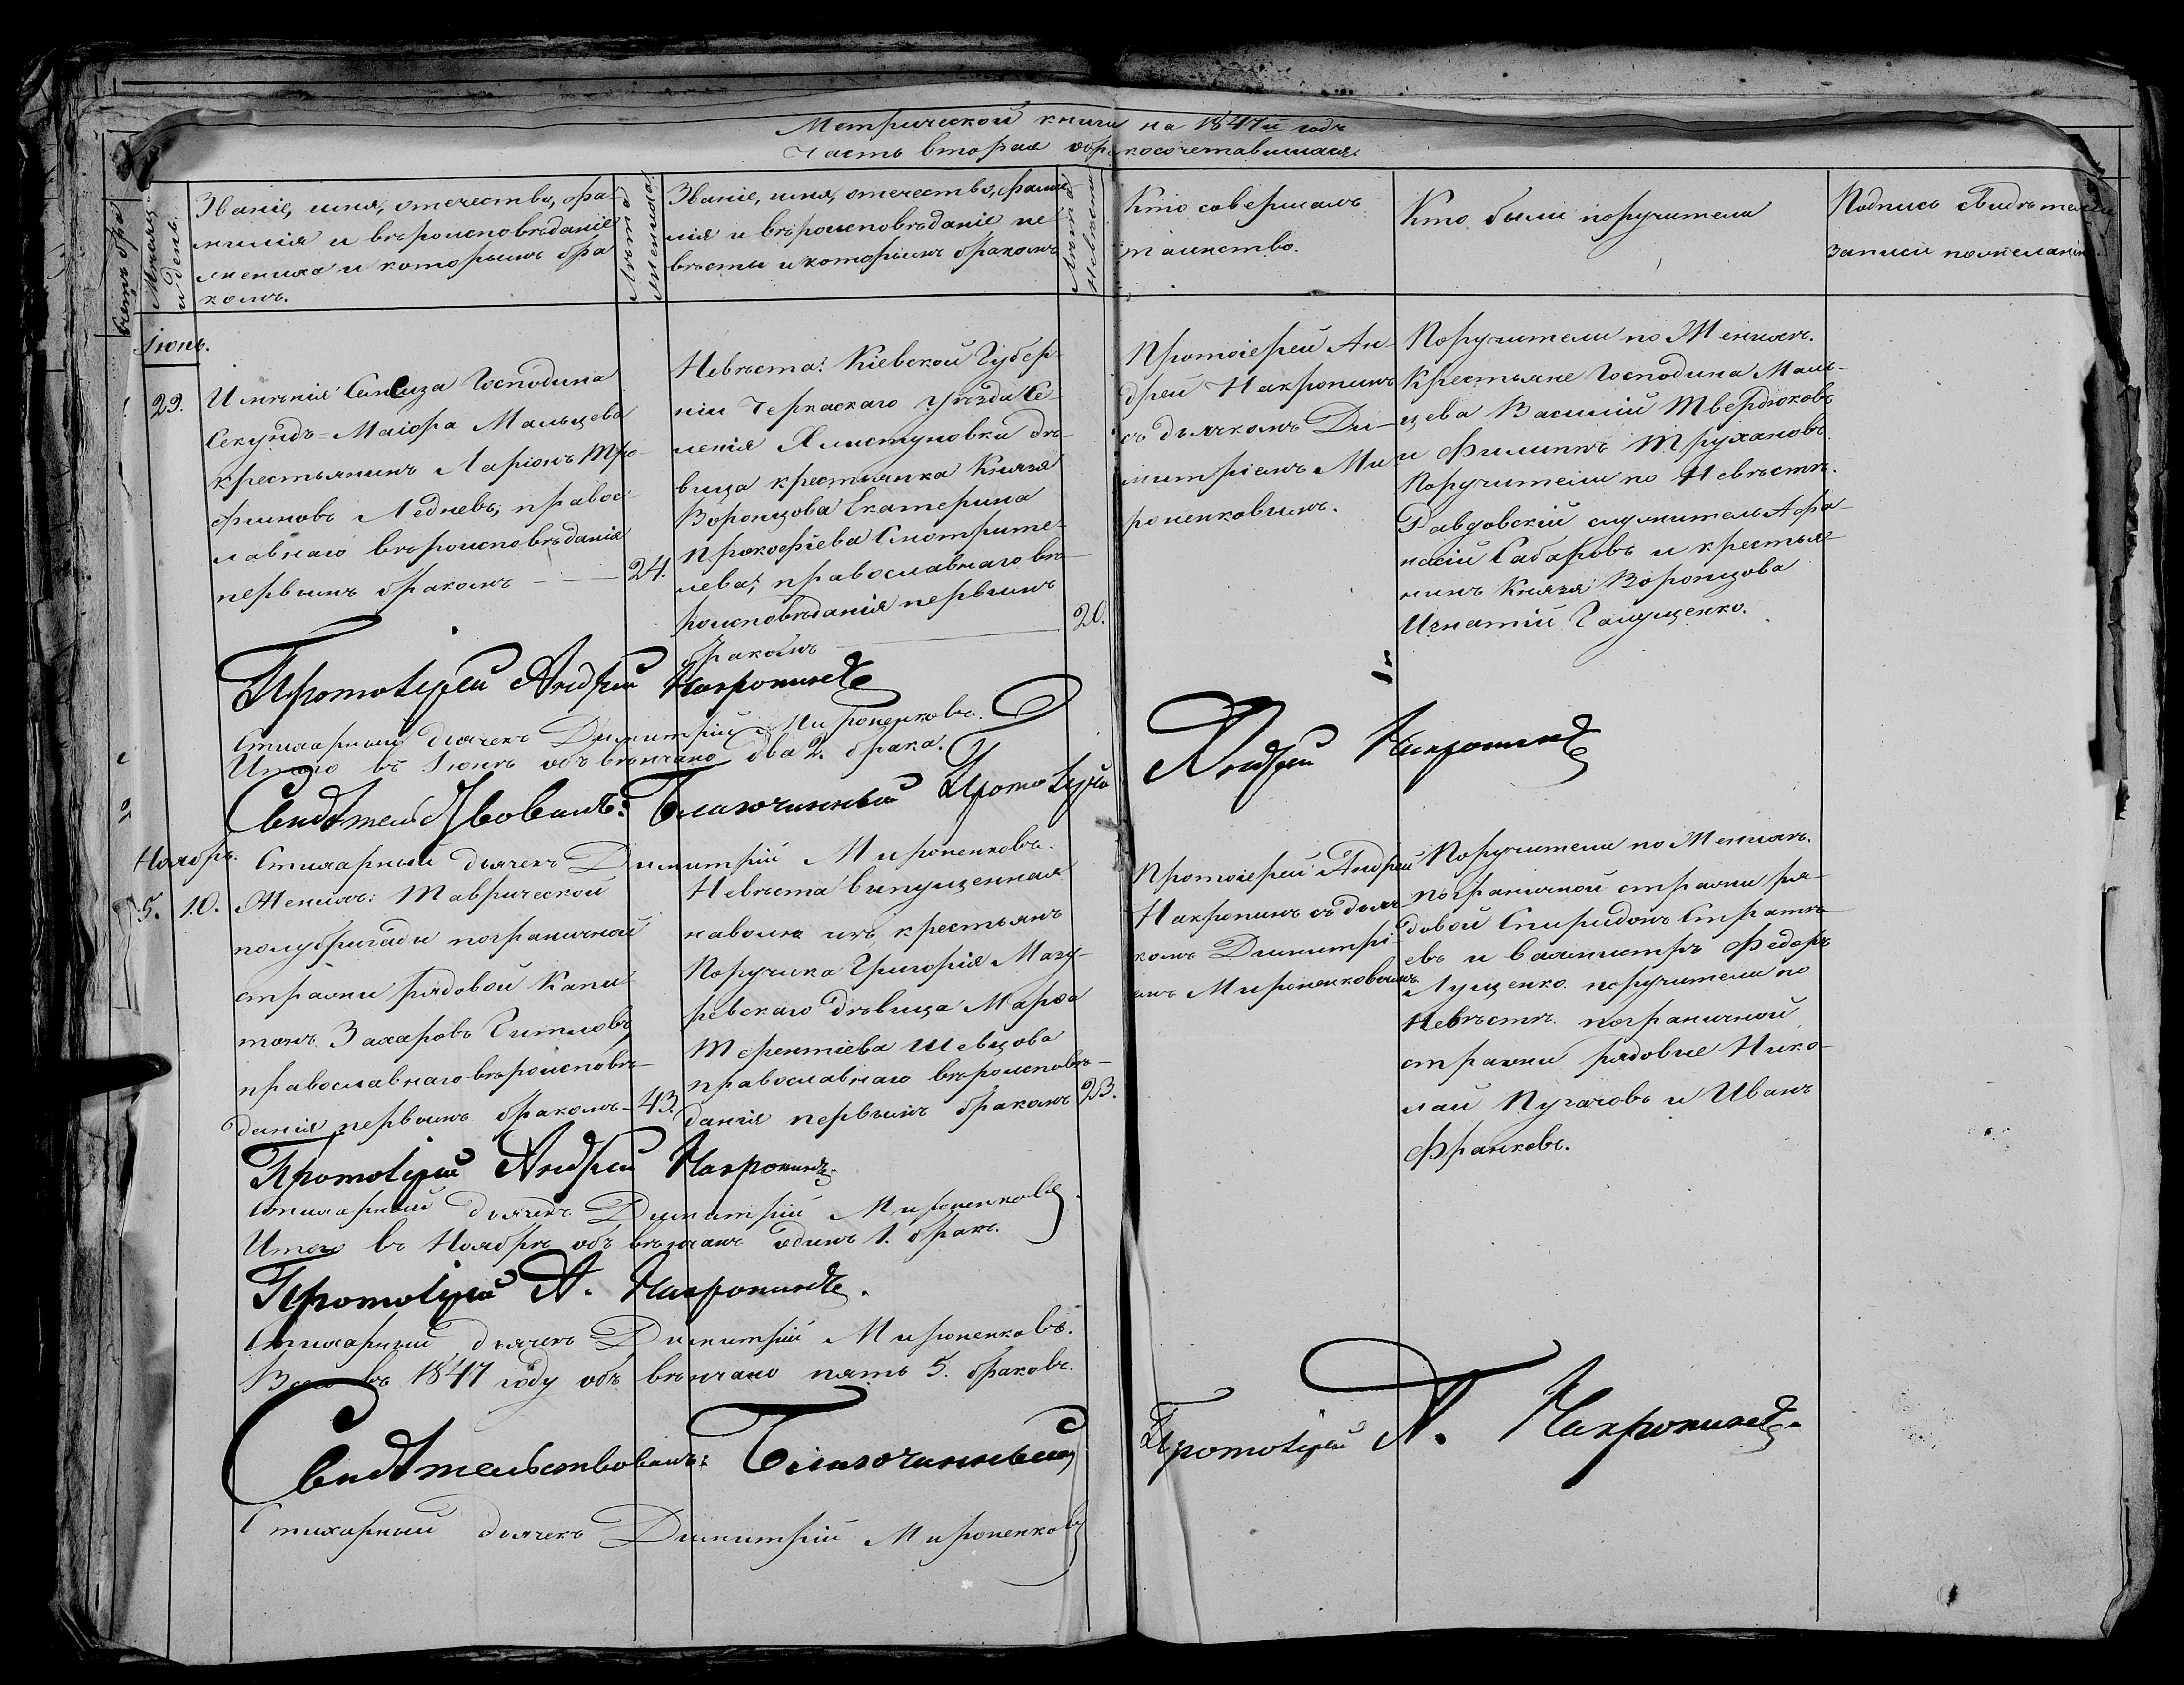 Метрической книги на 1847й годъ
Часть вторая о бракосочетавшихся.
Счетъ бра
Мѣсяцъ и день.
Званіе, имя, отечество, фа-
милія и вѣроисповѣданіе
жениха и которымъ бра
комъ.
Лѣта жениха.
Званіе, имя, отечество, фами
лія и вѣроисповѣданіе не
вѣсты и которымъ бракомъ
Лѣта невѣсты
Кто совершалъ
таинство.
Кто были поручители
Подпись свидѣтелей
записи по желанію
Іюнь.
29.
Имѣнія Господина
Секундъ-Маіора Мальцева
крестьянинъ Ларіонъ Тро-
фимовъ Ледневъ, правос-
лавнаго вѣроисповѣданія
первымъ бракомъ
24.
Невѣста: Кіевской Губер-
ніи Черкаскаго уѣзда Се-
ленія дѣ-
вица крестьянка Князя
Воронцова Екатерина
Прокофіева Смотрите-
лева, православнаго вѣ-
роисповѣданія первымъ
бракомъ
20.
Протоіерей Ан-
дрей Накропинъ
съ дьячкомъ Ди-
митріемъ Ми-
роненковымъ.
Поручители по Женихѣ.
Крестьяне Господина Маль-
цева Василій Твердюковъ
и Филиппъ Трухановъ.
Поручители по Невѣстѣ.
служитель Афа-
насій Сабаровъ и крестья-
нинъ Князя Воронцова
Игнатій Галущенко.
Протоіерей Андрей Накропинъ
Стихарный дьячекъ Димитрій Мироненковъ.
Итого въ Іюнѣ объвѣнчано два 2. брака.
Свидѣтельствовалъ: Благочинный Протоіерей
Андрей Накропинъ
Стихарный дьячекъ Димитрій Мироненковъ.
Ноябрь.
5.
10.
Женихъ: Таврической
полубригады пограничной
стражи рядовой Капи
тонъ Захаровъ Титловъ,
православнаго вѣроисповѣ-
данія первымъ бракомъ
43.
Невѣста выпущенная
наволю изъ крестьянъ
Поручика Григорія Мазу-
ревскаго дѣвица Марфа
Терентіева Шевцова
православнаго вѣроисповѣ-
данія первымъ бракомъ
23.
Протоіерей Андрей
Накропинъ съ дьяч-
комъ Димитрі-
емъ Мироненковымъ
Поручители по Женихѣ.
пограничной стражи ря-
довой Спиридонъ Стратѣ-
евъ и вахмистръ Федоръ
Лущенко. поручители по
Невѣстѣ. пограничной
стражи рядовые Нико-
лай Пугачовъ и Иванъ
Франковъ.
Протоіерей Андрей Накропинъ.
Стихарный дьячекъ Димитрій Мироненковъ.
Итого въ Ноябрѣ объвѣнчанъ одинъ 1. бракъ.
Протоіерей А. Накропинъ.
Стихарный дьячекъ Димитрій Мироненковъ.
Всего въ 1847 году объвѣнчано пять 5. браковъ.
Свидѣтельствовалъ: Благочинный Протоіерей А. Накропинъ.
Стихарный дьячекъ Димитрій Мироненковъ